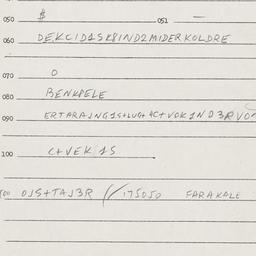 050 $ 051 —
060 DEKCID1SK8IND2MIDERKOLDRE
070 0
080 BENKPELE
090 ERTARAJNG1S+LUG+4C+VOK1ND3RVO
100 C+VEK1S
OJS+TAJ3R //175050 FARAKALE